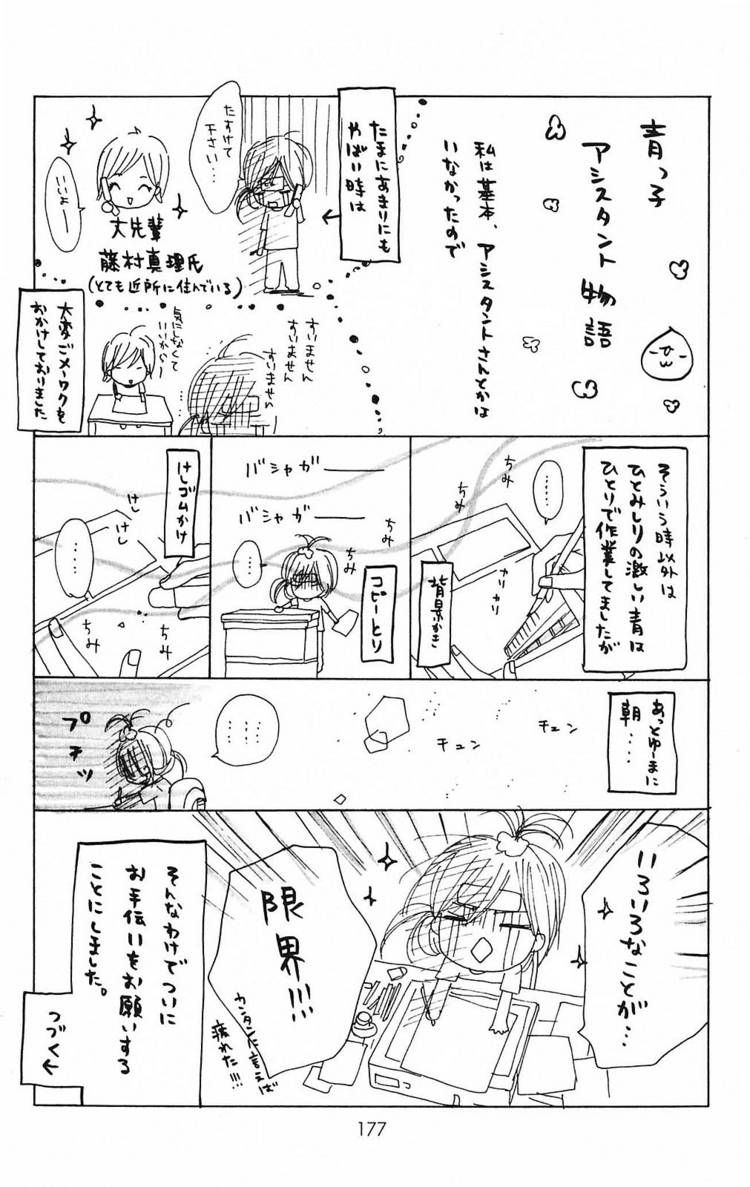 青っ子
アシスタント物語
私は基本、アシスタントさんとかは
いなかったので
たまにあまりにも
やばい時は
たすけて
下さい…
いいよー
大先輩
藤村真理氏
(とても近所に住んでいる)
すいません
すいません
すいません
気にしなくて
いいから〜
大変ごメーワクを
おかけしておりました
そういう時以外は
ひとみしりの激しい青は
ひとりで作業してましたが
ちみ
ちみ
カリカリ
背景かき
バシャガ――
バシャガ――
‥‥
ちみ
ちみ
コピーとり
けしゴムかけ
けし
けし
‥‥
ちみ
ちみ
あっとゆーまに
朝‥‥
チュン
チュン
‥‥
プチッ
いろいろなことが…
限界!!!
カンタンに言えば
疲れた!!!
そんなわけでついに
お手伝いをお願いする
ことにしました。
つづく←
177